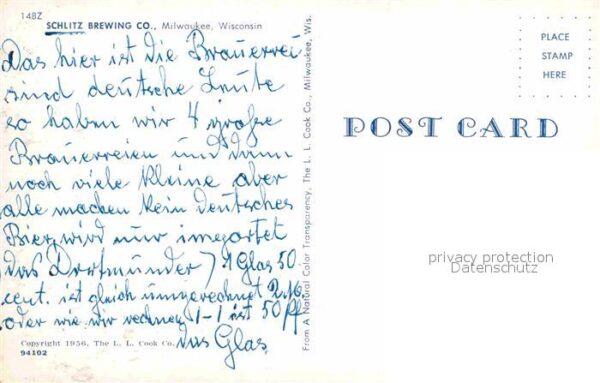 148Z
SCHLITZ BREWING CO., Milwaukee, Wisconsin
Das hier ist die Brauerrei
sind deutsche Leute
so haben wir 4 große
Brauerreien und dann
noch viele kleine aber
alle machen kein deutsches
Bier, wird nur imgortet
das Dortmunder, 1 Glas 50
cent. ist gleich umgerechnet 2.
oder wie wir rechnen 1-1 ist 50 Pf
das Glas
Copyright 1956, The L. L. Cook Co.
94102
From A Natural Color Transparency, The L. L. Cook Co., Milwaukee, Wis.
PLACE
STAMP
HERE
POST CARD
privacy protection
Datenschutz